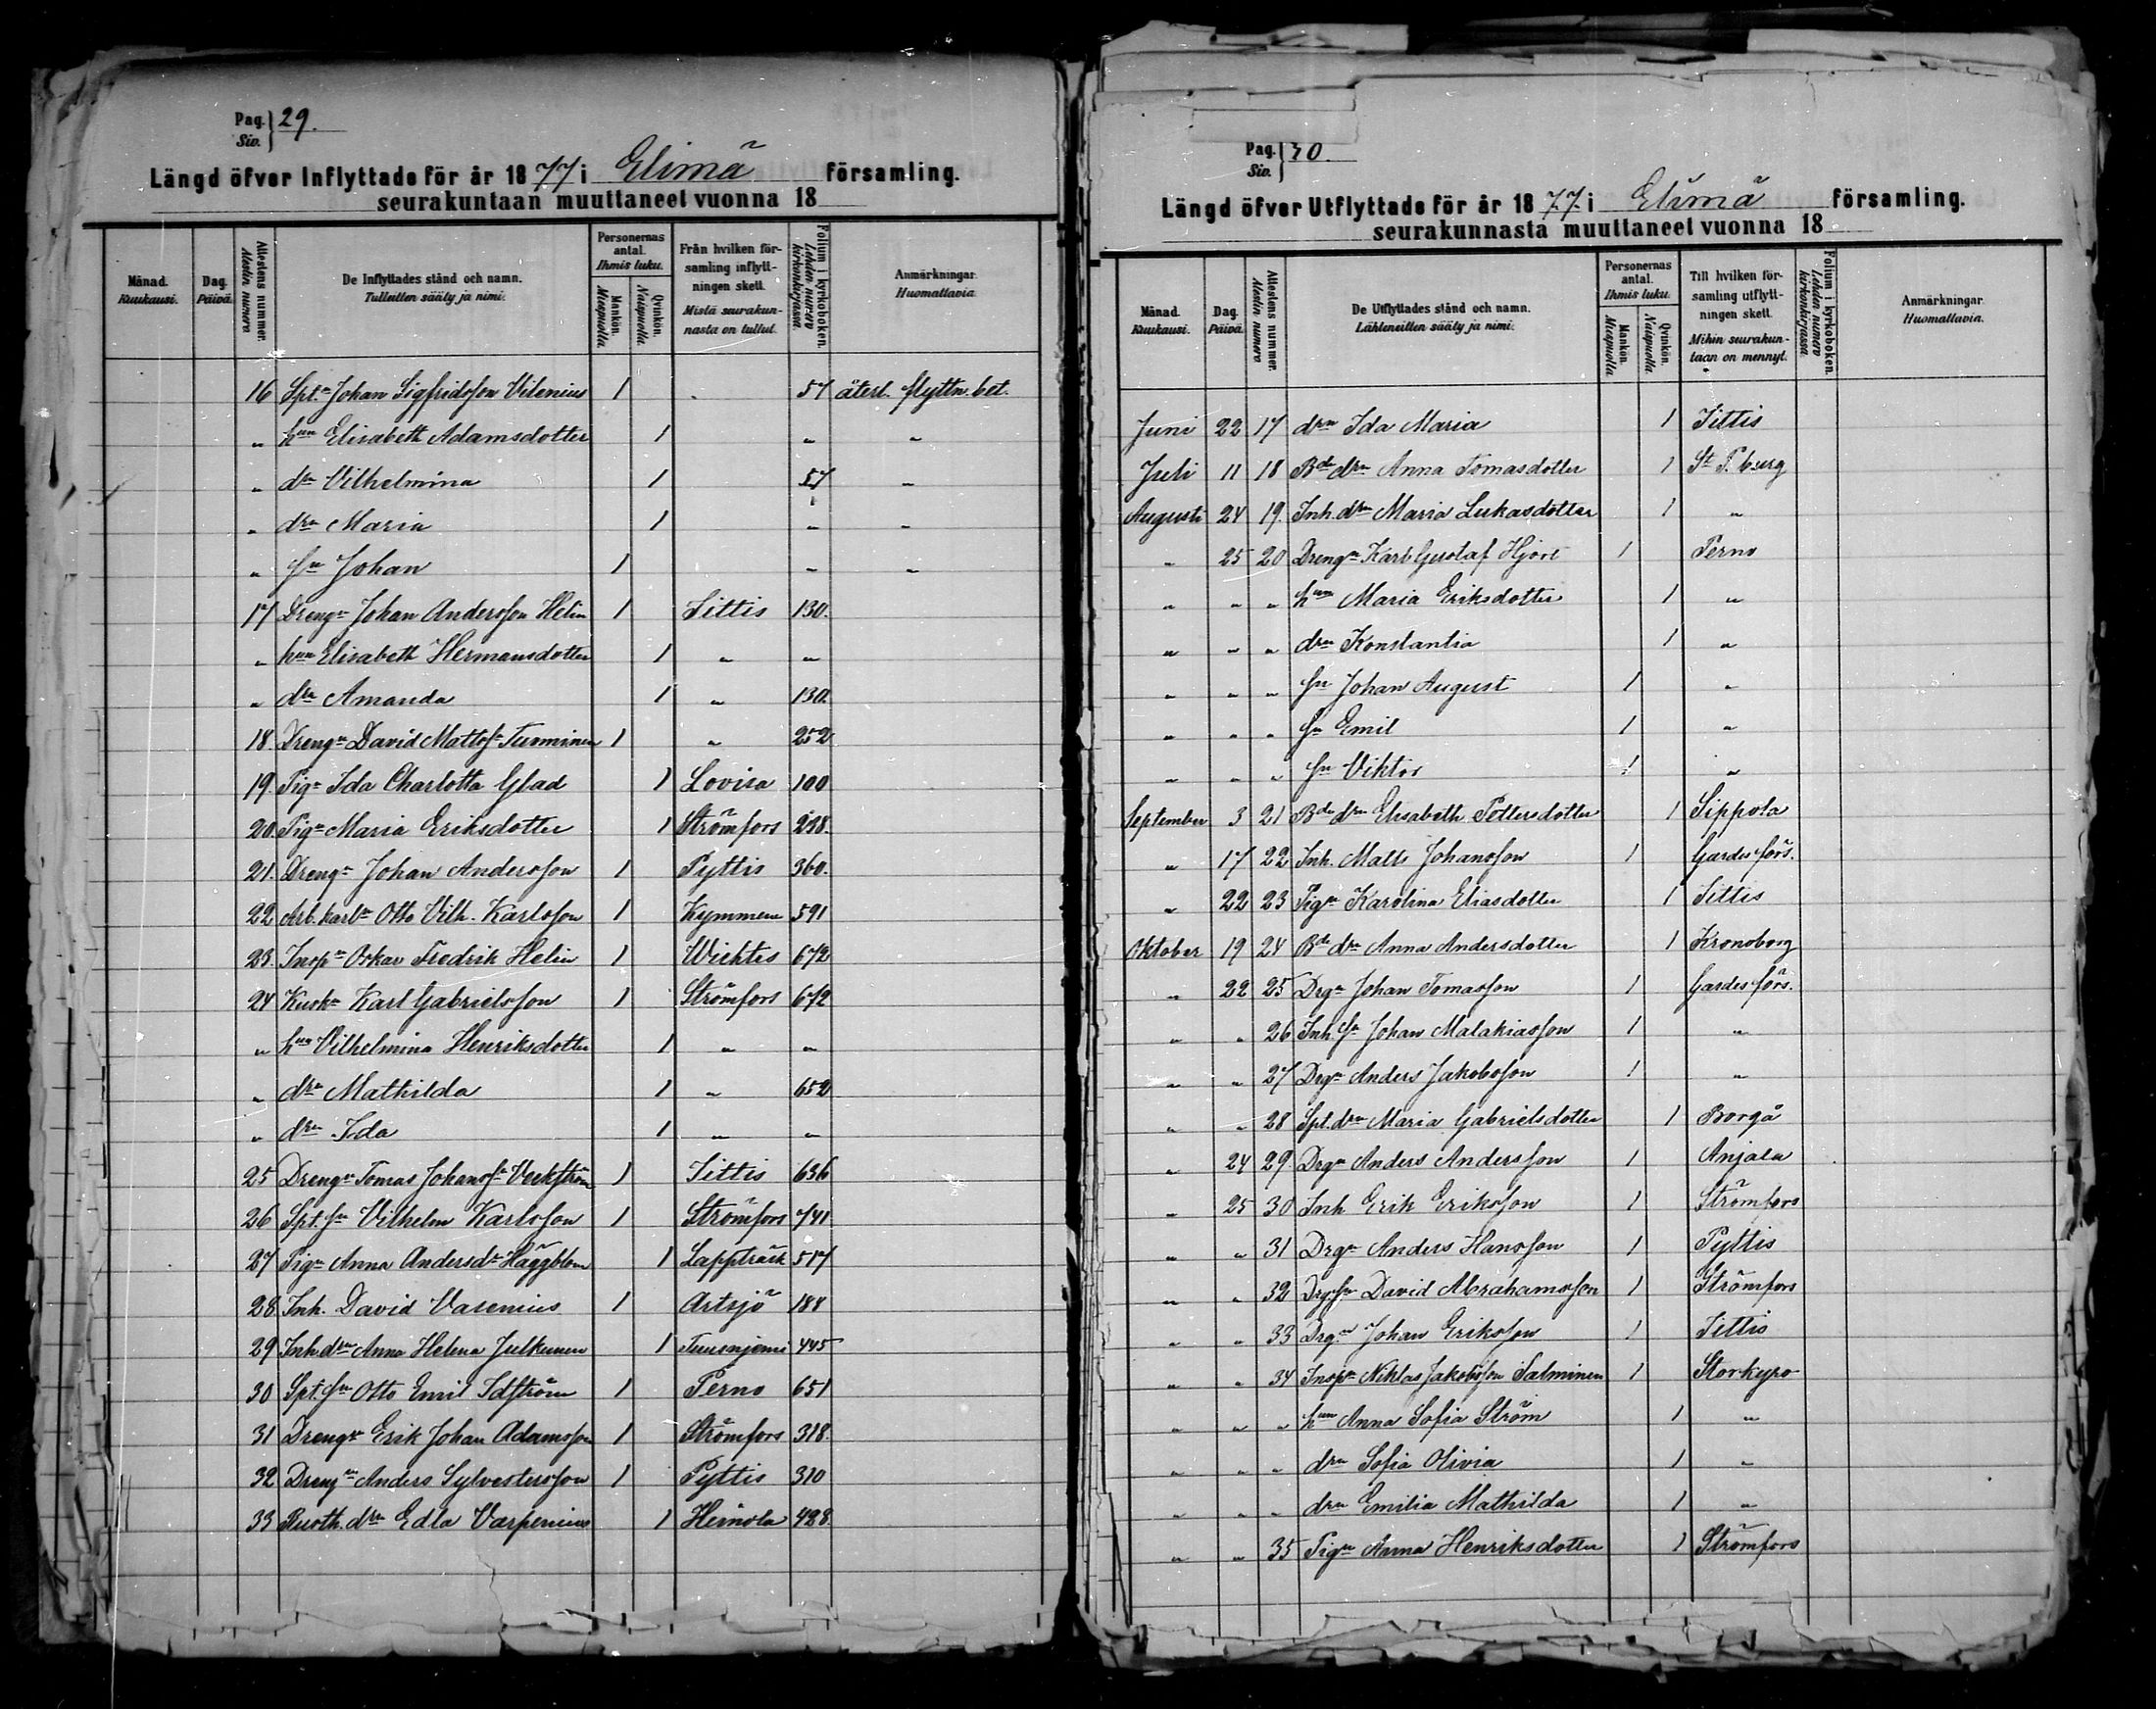 Pag. Siv. } 29.
Längd öfver Inflyttade för år 1877 i Elimä församling.
seurakuntaan muuttaneet vuonna 18
Månad. Kuukausi. | Dag. Päivä. | Attestens nummer. Atestin numero | De Inflyttades stånd och namn. Tulleitten sääty ja nimi. | Personernas antal. Ihmis luku. Mankön. Miespuolia. Qvinkön. Naispuolia. | Från hvilken församling inflyttningen skett. Mistä seurakunnasta on tullut. | Folium i kyrkoboken. Lehden numero kirkonkirjassa. | Anmärkningar. Huomattavia.
16 Spt.n Johan Sigfridsson Vilenius 1 57 återl. flyttn. bet.
„ hun Elisabeth Adamsdotter 1 „ „
„ drn Vilhelmina 1 57 „
„ drn Maria 1 „ „
„ sn Johan 1 „ „
17 Drengn Johan Andersson Helin 1 Iittis 130.
„ hun Elisabeth Hermansdotter 1 „ „
„ drn Amanda 1 „ 130.
18. Drengn David Mattss. Tuominen 1 „ 252
19. Pign Ida Charlotta Glad 1 Lovisa 100
20. Pign Maria Eriksdotter 1 Strömfors 238.
21. Drengn Johan Andersson 1 Pyttis 360.
22 Arb. karln Otto Vilh. Karlsson 1 Kymmene 591
23. Inspn Oskar Fredrik Helin 1 Wichtis 672
24 Kuskn Karl Gabrielsson 1 Strömfors 672
„ hun Vilhelmina Henriksdotter 1 „ „
„ drn Mathilda 1 „ 652
„ drn Ida 1 „ „
25 Drengn Tomas Johanss. Veckström 1 Iittis 636
26 Spt. sn Vilhelm Karlsson 1 Strömfors 741
27 Pign Anna Andersdr Häggblom 1 Lappträsk 517
28. Inh. David Vasenius 1 Artsjö 188
29 Inh. drn Anna Helena Julkunen 1 Tuusnjemi 445
30 Spt. sn Otto Emil Idström 1 Perno 651
31 Drengn Erik Johan Adamsson 1 Strömfors 318.
32 Drengn Anders Sylvestersson 1 Pyttis 310
33 drn Edla Varpenius 1 Heinola 428.
Pag. Siv. } 30.
Längd öfver Utflyttade för år 1877 i Elimä församling.
seurakunnasta muuttaneet vuonna 18
Månad. Kuukausi. | Dag. Päivä. | Attestens nummer. Atestin numero | De Utflyttades stånd och namn. Lähteneitten sääty ja nimi. | Personernas antal. Ihmis luku. Mankön. Miespuolia. Qvinkön. Naispuolia. | Till hvilken församling utflyttningen skett. Mihin seurakuntaan on mennyt. | Folium i kyrkoboken. Lehden numero kirkonkirjassa. | Anmärkningar. Huomattavia.
Juni 22 17 drn Ida Maria 1 Iittis
Juli 11 18 Bde drn Anna Tomasdotter 1 St P.burg
Augusti 24 19. Inh. drn Maria Lukasdotter 1 „
„ 25 20 Drengn Karl Gustaf Hjort 1 Perno
„ „ „ hun Maria Eriksdotter 1 „
„ „ „ drn Konstantia 1 „
„ „ „ sn Johan August 1 „
„ „ „ sn Emil 1 „
„ „ „ sn Viktor 1 „
September 3 21 Bde drn Elisabeth Pettersdotter 1 Sippola
„ 17 22 Inh. Matts Johansson 1 Gardesförs.
„ 22 23 Pign Karolina Eliasdotter 1 Iittis
Oktober 19 24 Bde drn Anna Andersdotter 1 Kronoborg
„ 22 25 Drgn Johan Tomasson 1 Gardesförs.
„ „ 26 Inh. sn Johan Malakiasson 1 „
„ „ 27 Drgn Anders Jakobsson 1 „
„ „ 28 Spt. drn Maria Gabrielsdotter 1 Borgå
„ 24 29. Drgn Anders Andersson 1 Anjala
„ 25 30 Inh Erik Eriksson 1 Strömfors
„ „ 31 Drgn Anders Hansson 1 Pyttis
„ „ 32 Drg. sn David Abrahamsson 1 Strömfors
„ „ 33 Drgn Johan Eriksson 1 Iittis
„ „ 34 Inspn Niklas Jakobsson Salminen 1 Storkyro
„ „ „ hun Anna Sofia Ström 1 „
„ „ „ drn Sofia Olivia 1 „
„ „ „ drn Emilia Mathilda 1 „
„ „ 35 Pign Anna Henriksdotter 1 Strömfors